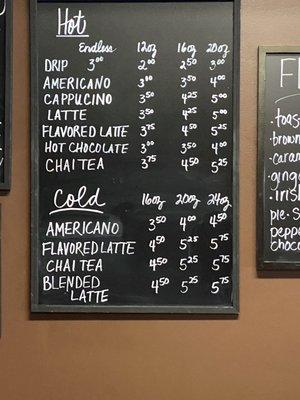 Hot
Endless 12oz 16oz 20oz
DRIP 3.00 2.00 2.50 3.00
AMERICANO 3.00 3.50 4.00
CAPPUCINO 3.50 4.25 5.00
LATTE 3.50 4.25 5.00
FLAVORED LATTE 3.75 4.50 5.25
HOT CHOCOLATE 3.00 3.50 4.00
CHAI TEA 3.75 4.50 5.25
Cold 16oz 20oz 24oz
AMERICANO 3.50 4.00 4.50
FLAVORED LATTE 4.50 5.25 5.75
CHAI TEA 4.50 5.25 5.75
BLENDED
LATTE 4.50 5.25 5.75
F
·toas
·brown
·caram
·ging
·irish
pie · S
peppe
choco